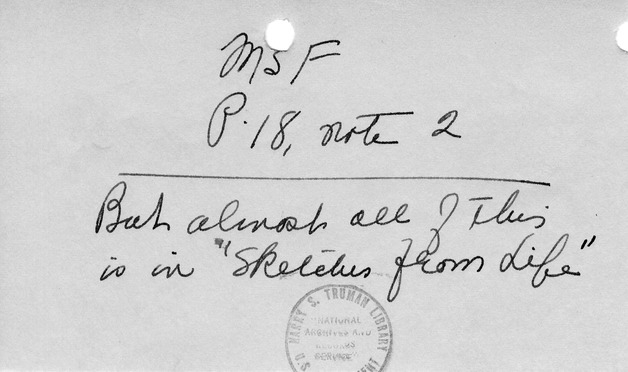 MSF
P. 18, note 2
But almost all of this
is in "Sketches from Life"
HARRY S. TRUMAN LIBRARY
NATIONAL
ARCHIVES AND
RECORDS
SERVICE